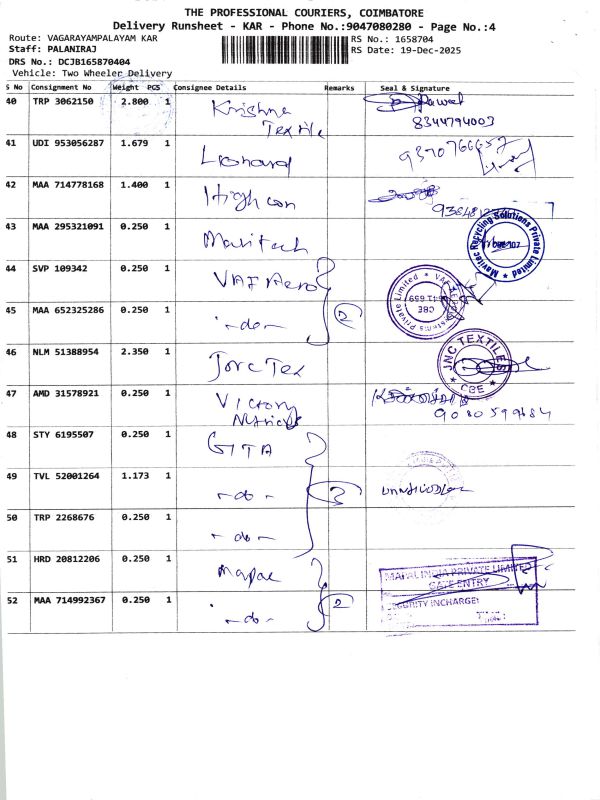 THE PROFESSIONAL COURIERS, COIMBATORE
Delivery Runsheet - KAR - Phone No.:9047080280 - Page No.:4
Route: VAGARAYAMPALAYAM KAR
RS No.: 1658704
Staff: PALANIRAJ
RS Date: 19-Dec-2025
DRS No.: DCJB165870404
Vehicle: Two Wheeler Delivery
S No Consignment No Weight PCS Consignee Details Remarks Seal & Signature
40 TRP 3062150 2.800 1 Krishna Textile
8344794003
41 UDI 953056287 1.679 1 Lionard 9370766657
42 MAA 714778168 1.400 1 High con
43 MAA 295321091 0.250 1 Mavitech
Mavitec Recycling Solutions Private Limited
44 SVP 109342 0.250 1 VAF Aero
45 MAA 652325286 0.250 1 -do- 2
Private Limited * VAF
CBE
46 NLM 51388954 2.350 1 Jnc Tex
JNC TEXTILES
* CBE *
47 AMD 31578921 0.250 1 Victory
48 STY 6195507 0.250 1 GITA
49 TVL 52001264 1.173 1 -do- 3
50 TRP 2268676 0.250 1 -do-
51 HRD 20812206 0.250 1 Mapal
MAPAL INDIA PRIVATE LIMITED
GATE ENTRY
52 MAA 714992367 0.250 1 -do- 2
SECURITY INCHARGE:
TIME: